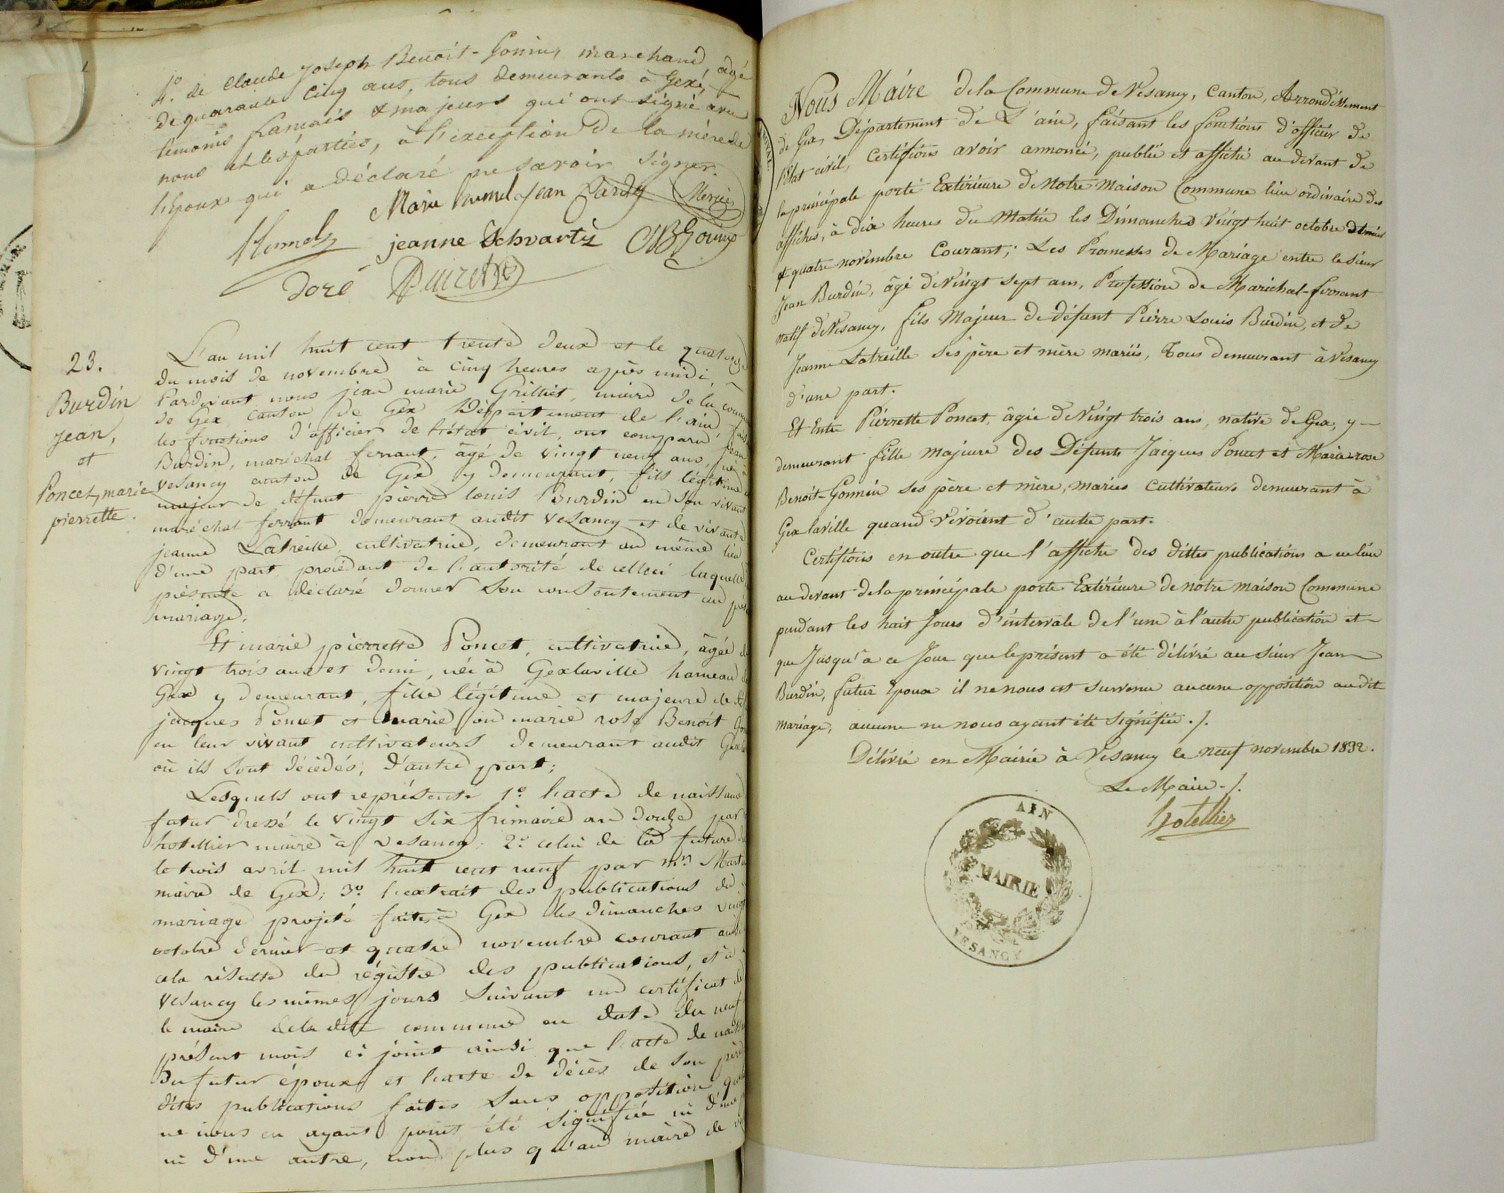 4.° de Claude Joseph Benoit-Gonin, marchand, agé
de quarante cinq ans, tous demeurants à Gex,
témoins français & majeurs qui ont signé avec
nous et les parties, à l'exception de la mère de
l'époux qui a déclaré ne savoir signer.
Marie Humel Jean Mercier
Humel jeanne Schvartz CJB Gonin
Doré
23.
Burdin
jean,
et
Poncet, marie
pierrette.
L'an mil huit cent trente deux et le quatorze
du mois de novembre à cinq heures après midi,
Pardevant nous jean marie Grilliet, maire de la commune
de Gex canton de Gex Département de l'ain
les fonctions d'officier de l'état civil, ont comparu jean
Burdin, maréchal ferrant, agé de vingt neuf ans, né à
Vesancy canton de Gex y demeurant, fils légitime
majeur de défunt pierre louis Burdin en son vivant
maréchal ferrant demeurant audit Vesancy et de vivante
jeanne Latreille cultivatrice, demeurant au même lieu
d'une part procédant de l'autorité de celleci laquelle
présente a déclaré donner son consentement au
mariage;
Et marie pierrette Poncet, cultivatrice, âgée de
vingt trois ans et demi, née à Gexlaville hameau
Gex y demeurant, fille légitime et majeure de
jacques Poncet et marie ou marie rose Benoit
en leur vivant cultivateurs demeurant audit Gex
où ils sont décédés, d'autre part;
Lesquels ont représenté 1.° l'acte de naissance
futur dressé le vingt six frimaire an douze par
hotellier maire à Vesancy; 2.° celui de la future
le trois avril mil huit cent neuf par mr. Martin
maire de Gex; 3.° l'extrait des publications de
mariage projeté faites à Gex les dimanches vingt
octobre dernier et quatre novembre courant
cela résulte du régistre des publications, et à
Vesancy les mêmes jours suivant un certificat de
le maire de la dite commune en date du neuf
présent mois ci joint ainsi que l'acte de
du futur époux et l'acte de décès de son père
dites publications faites sans opposition
ne nous en ayant point été signifiée ni d'une
ni d'une autre, non plus qu'au maire de
Nous Maire de la Commune de Vesancy, Canton, Arrondissement
de Gex, Département de L'ain, faisant les fonctions d'officier de
l'état civil, Certifions avoir annoncé, publié et affiché au devant de
la principale porte Extérieure de Notre maison Commune lieu ordinaire des
affiches, à dix heures du Matin les Dimanches vingt huit octobre dernier
& quatre novembre Courant; Les Promesses de Mariage entre le sieur
Jean Burdin, âgé de vingt sept ans, Profession de Maréchal-ferrant
natif de Vesancy, fils Majeur de défunt Pierre Louis Burdin et de
Jeanne Latreille Ses père et mère mariés, Tous demeurant à Vesancy
d'une part.
Et Entre Pierrette Poncet, âgée de Vingt trois ans, native de Gex, y
demeurant fille majeure des Défunts Jacques Poncet et Marie rose
Benoit-Gonnin Ses père et mère, mariés Cultivateurs demeurant à
Gex laville quand vivoient d'autre part.
Certifions en outre que l'affiche des dittes publications a eu lieu
au devant de la principale porte Extérieure de notre maison Commune
pendant les huit Jours d'intervale de l'une à l'autre publication et
que Jusqu'à ce Jour que le présent a été délivré au sieur Jean
Burdin, futur Epoux il ne nous est survenu aucune opposition au dit
mariage, aucune ne nous ayant été signifiée ./.
Délivré en Mairie à Vesancy le neuf novembre 1832.
Le Maire ./.
hotellier
AIN
MAIRIE
VESANCY